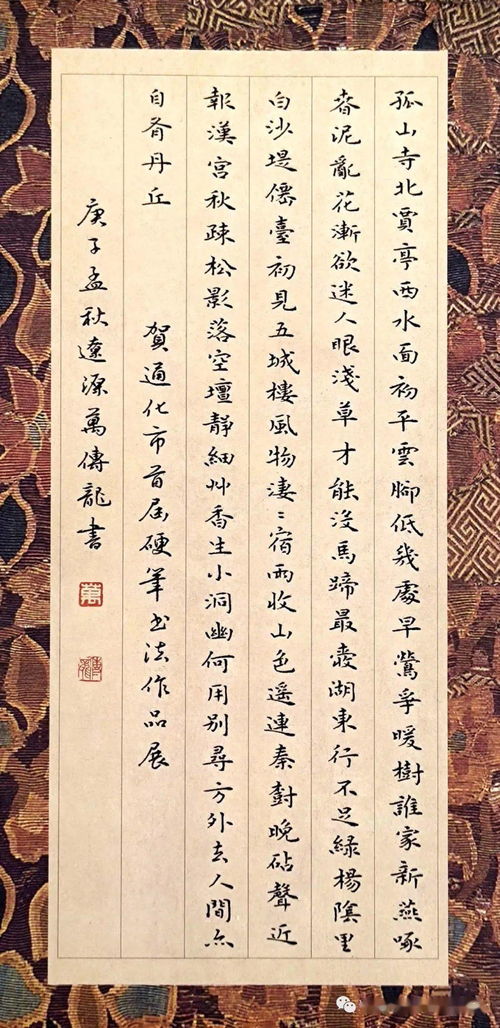 孤山寺北賈亭西水面初平雲腳低幾處早鶯爭暖樹誰家新燕啄
春泥亂花漸欲迷人眼淺草才能沒馬蹄最愛湖東行不足綠楊陰里
白沙堤僊臺初見五城樓風物淒〻宿雨收山色遙連秦樹晚砧聲近
報漢宮秋疎松影落空壇靜細艸香生小洞幽何用別尋方外去人間亦
自有丹丘 賀通化市首屆硬筆書法作品展
庚子孟秋遼源萬傳龍書
萬